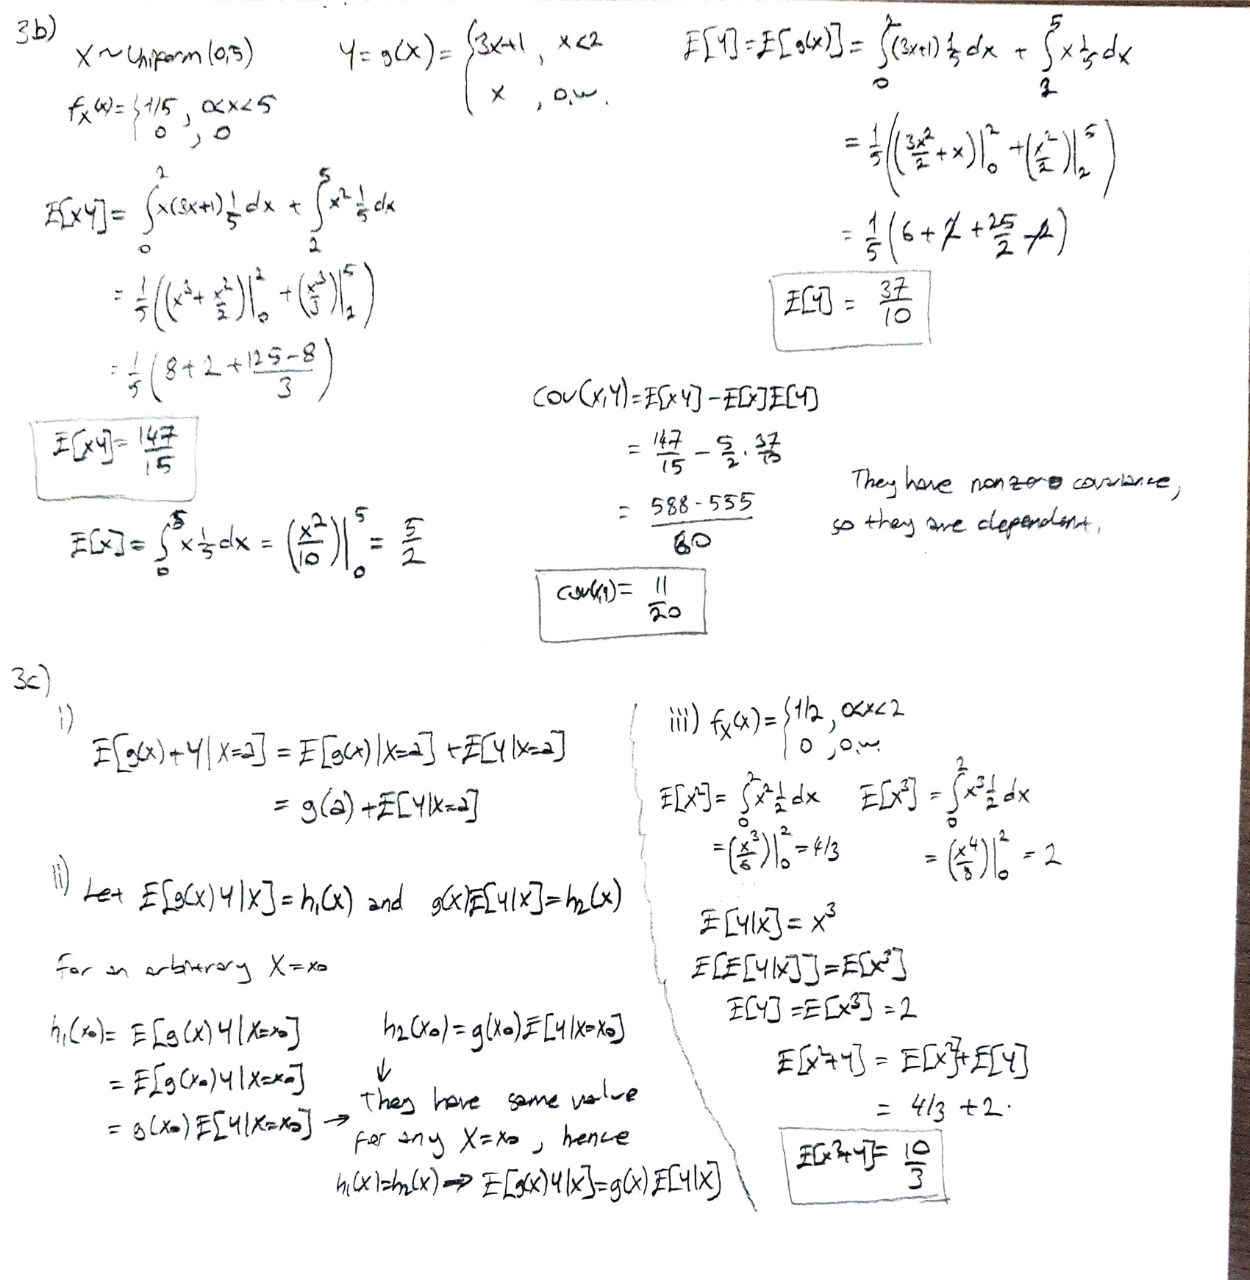 3b)
X ~ Uniform(0,5)
f_X(x) = { 1/5 , 0<x<5
0 , 0
Y = g(x) = { 3x+1 , x<2
x , o.w.
E[XY] = ∫_0^2 x(3x+1) 1/5 dx + ∫_2^5 x^2 1/5 dx
= 1/5 ((x^3 + x^2/2)|_0^2 + (x^3/3)|_2^5)
= 1/5 (8+2+ (125-8)/3)
E[XY] = 147/15
E[X] = ∫_0^5 x 1/5 dx = (x^2/10)|_0^5 = 5/2
E[Y] = E[g(x)] = ∫_0^2 (3x+1) 1/5 dx + ∫_2^5 x 1/5 dx
= 1/5 ((3x^2/2 + x)|_0^2 + (x^2/2)|_2^5)
= 1/5 (6 + 2 + 25/2 - 2)
E[Y] = 37/10
Cov(X,Y) = E[XY] - E[X]E[Y]
= 147/15 - 5/2 · 37/10
= (588-555)/60
Cov(X,Y) = 11/20
They have nonzero covariance,
so they are dependent.
3c)
i)
E[g(X)+Y|X=a] = E[g(X)|X=a] + E[Y|X=a]
= g(a) + E[Y|X=a]
ii) Let E[g(X)Y|X] = h_1(X) and g(X)E[Y|X] = h_2(X)
For an arbitrary X=x_0
h_1(x_0) = E[g(X)Y|X=x_0]
= E[g(x_0)Y|X=x_0]
= g(x_0)E[Y|X=x_0] →
h_2(x_0) = g(x_0)E[Y|X=x_0]
↓
They have same value
for any X=x_0, hence
h_1(X)=h_2(X) → E[g(X)Y|X]=g(X)E[Y|X]
iii) f_X(x) = { 1/2 , 0<x<2
0 , o.w.
E[X^2] = ∫_0^2 x^2 1/2 dx
= (x^3/6)|_0^2 = 4/3
E[X^3] = ∫_0^2 x^3 1/2 dx
= (x^4/8)|_0^2 = 2
E[Y|X] = X^3
E[E[Y|X]] = E[X^3]
E[Y] = E[X^3] = 2
E[X^2+Y] = E[X^2] + E[Y]
= 4/3 + 2.
E[X^2+Y] = 10/3